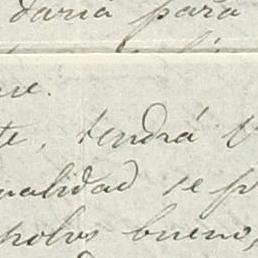 daria para
ue.
te, tendrá
ualidad se p
polvo bueno,